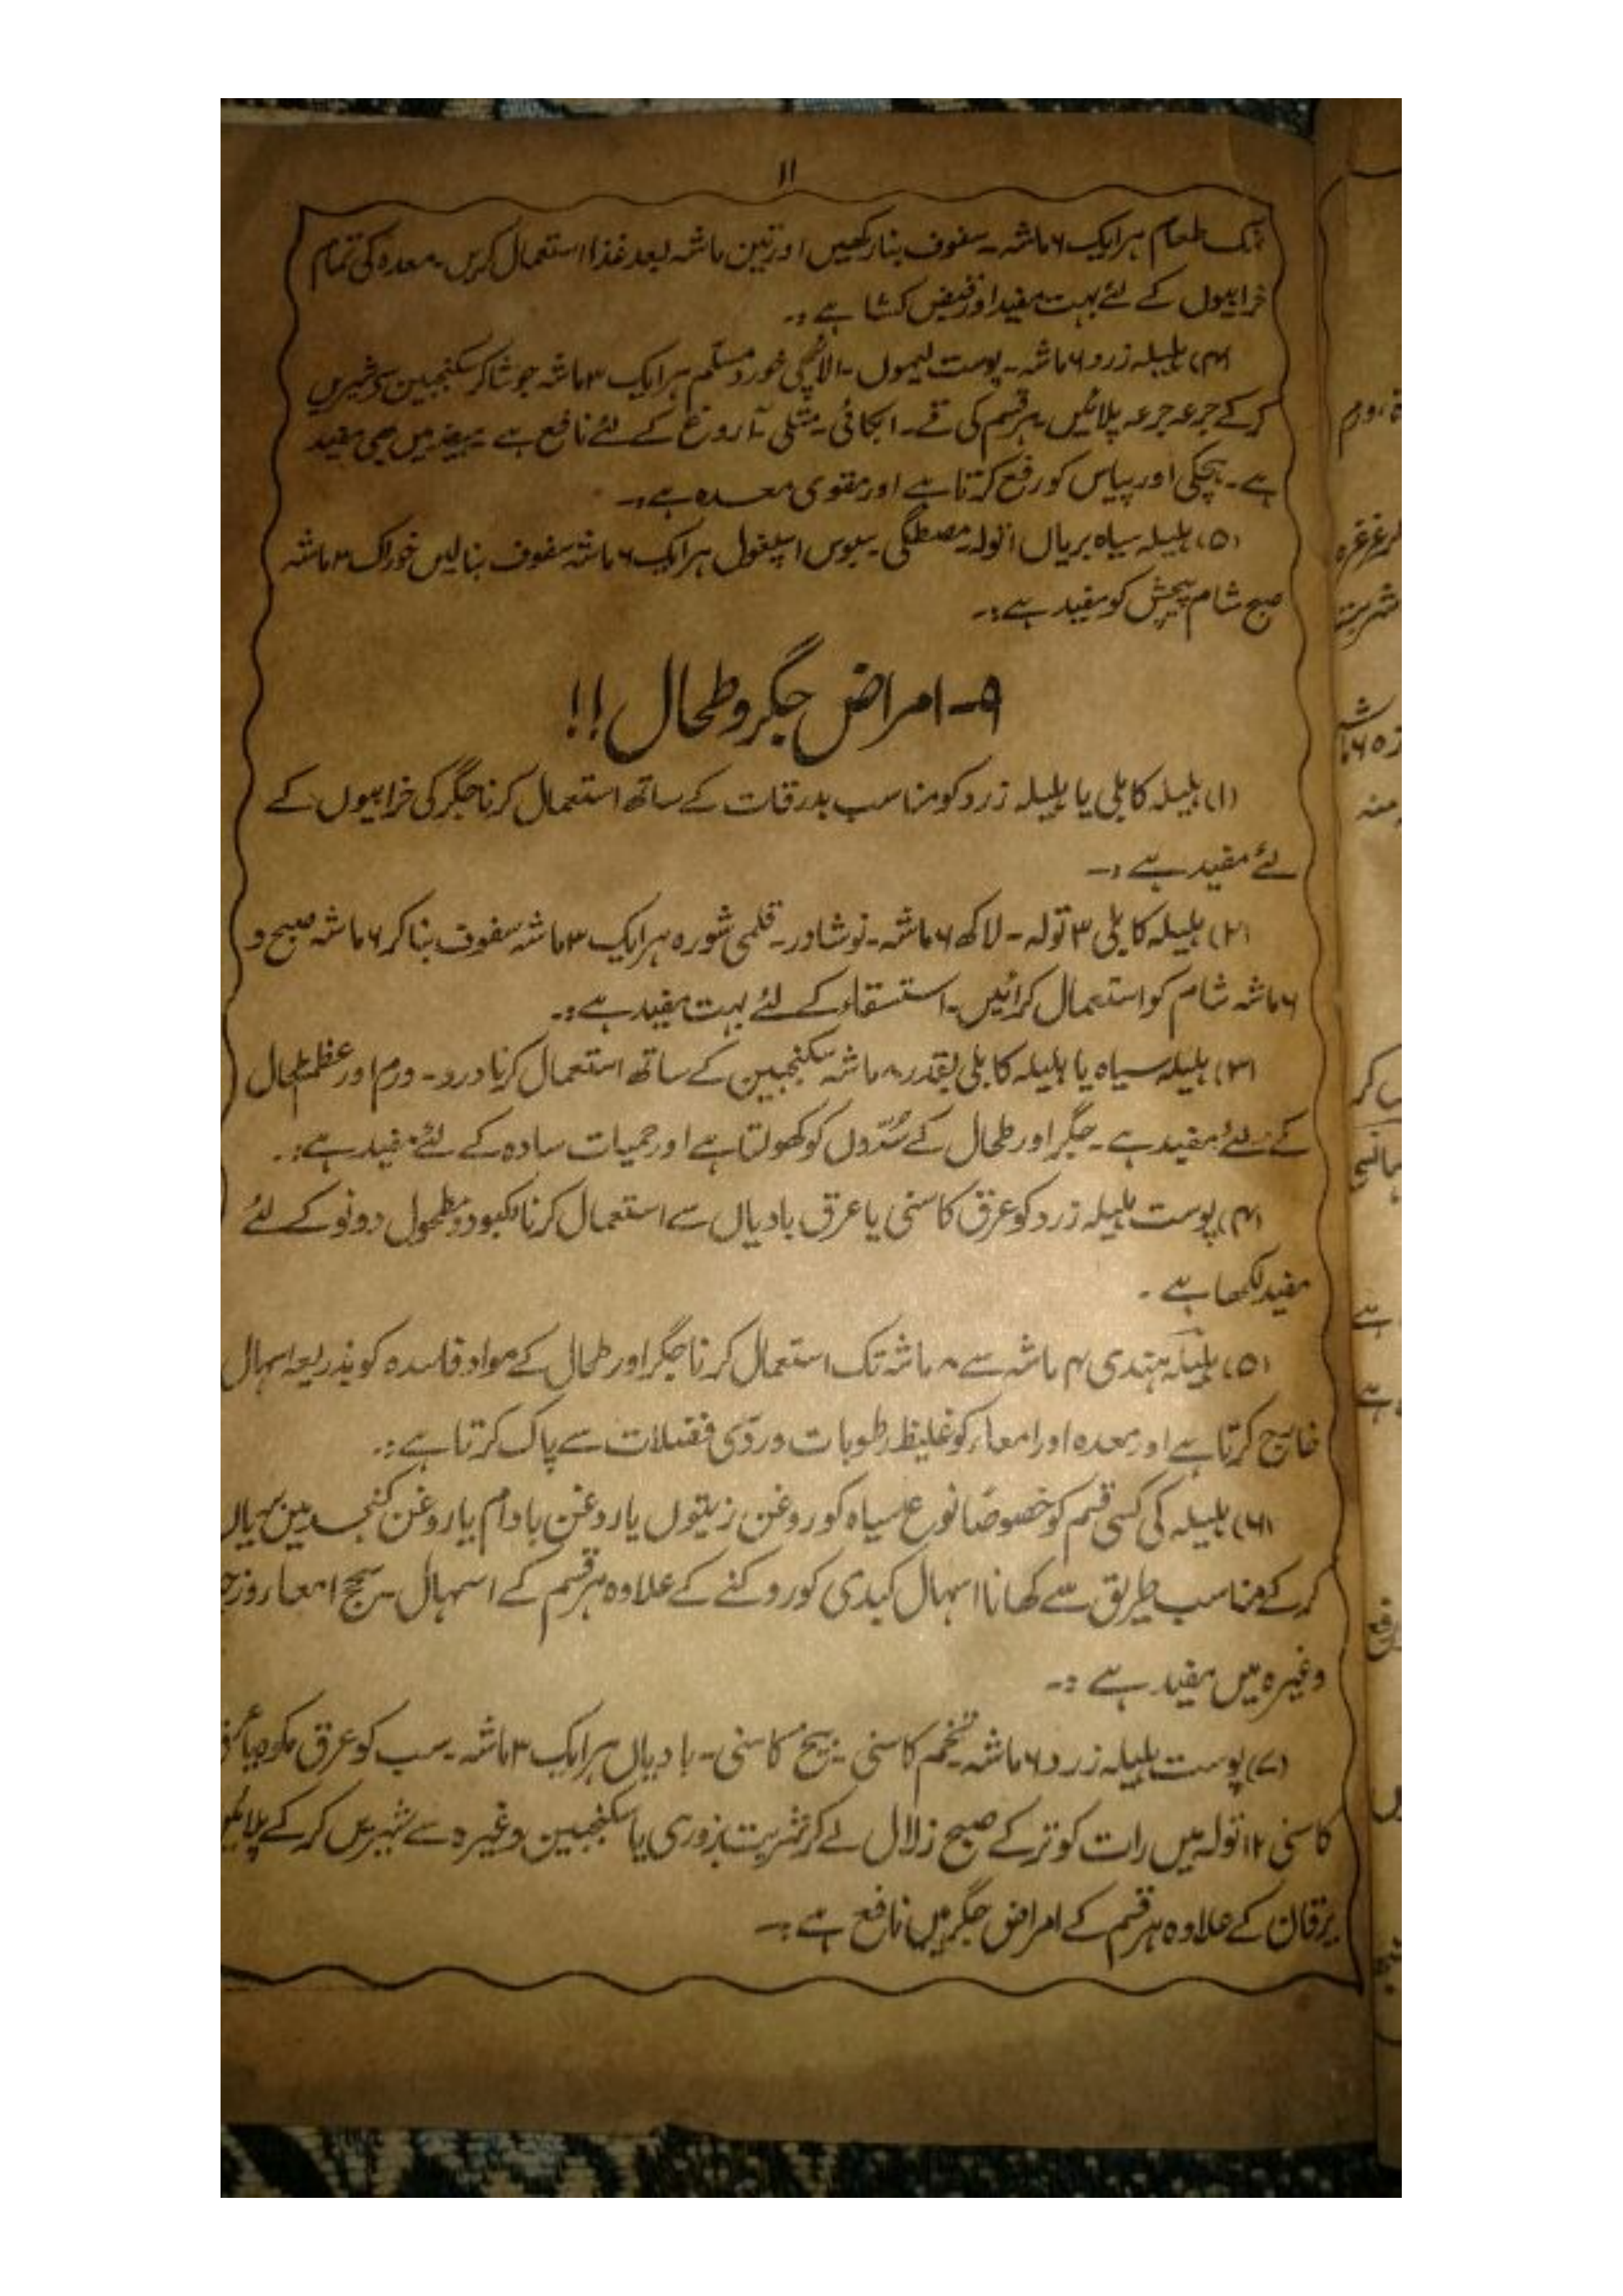 ۱۱
نمک طعام ہر ایک ۶ ماشہ۔ سفوف بنا رکھیں اور تین ماشہ بعد غذا استعمال کریں۔ معدہ کی تمام
خرابیوں کے لئے بہت مفید اور قبض کشا ہے :۔
(۴) ہلیلہ زرد ۶ ماشہ۔ پوست لیموں۔ الائچی خورد مسلّم ہر ایک ۳ ماشہ جوشا کر سکنجبین سے شیریں
کر کے جرعہ جرعہ پلائیں۔ ہر قسم کی قے۔ ابکائی۔ متلی۔ آروغ کے لئے نافع ہے۔ ہیضہ میں بھی مفید
ہے۔ ہچکی اور پیاس کو رفع کرتا ہے اور مقوی معدہ ہے :۔
(۵) ہلیلہ سیاہ بریاں ۱ تولہ۔ مصطگی۔ سبوس اسپغول ہر ایک ۶ ماشہ سفوف بنالیں خوراک ۳ ماشہ
صبح شام پیچش کو مفید ہے :۔
۹۔ امراض جگر و طحال !!
(۱) ہلیلہ کابلی یا ہلیلہ زرد کو مناسب بدرقات کے ساتھ استعمال کرنا جگر کی خرابیوں کے
لئے مفید ہے :۔
(۲) ہلیلہ کابلی ۳ تولہ۔ لاکھ ۶ ماشہ۔ نوشادر۔ قلمی شورہ ہر ایک ۳ ماشہ سفوف بنا کر ۶ ماشہ صبح و
۶ ماشہ شام کو استعمال کرائیں۔ استسقاء کے لئے بہت مفید ہے :۔
(۳) ہلیلہ سیاہ یا ہلیلہ کابلی بقدر ۸ ماشہ سکنجبین کے ساتھ استعمال کرنا درد۔ ورم اور عظم طحال
کے لئے مفید ہے۔ جگر اور طحال کے سُدّوں کو کھولتا ہے اور حمیات سادہ کے لئے مفید ہے :۔
(۴) پوست ہلیلہ زرد کو عرق کاسنی یا عرق بادیاں سے استعمال کرنا مکبود و مطحول دونو کے لئے
مفید لکھا ہے ۔
(۵) ہلیلہ ہندی ۴ ماشہ سے ۸ ماشہ تک استعمال کرنا جگر اور طحال کے مواد فاسدہ کو بذریعہ اسہال
خارج کرتا ہے اور معدہ اور امعاء کو غلیظ رطوبات و ردّی فضلات سے پاک کرتا ہے :۔
(۶) ہلیلہ کی کسی قسم کو خصوصاً نوع سیاہ کو روغن زیتوں یا روغن بادام یا روغن کنجد میں بریاں
کر کے مناسب طریق سے کھانا اسہال کبدی کو روکنے کے علاوہ ہر قسم کے اسہال۔ سحج امعا۔
وغیرہ میں مفید ہے :۔
(۷) پوست ہلیلہ زرد ۶ ماشہ۔ تخم کاسنی۔ بیخ کاسنی۔ بادیاں ہر ایک ۳ ماشہ۔ سب کو عرق مکوہ یا عرق
کاسنی ۱۲ تولہ میں رات کو تر کے صبح زلال لے کر شربت بزوری یا سکنجبین وغیرہ سے شیریں کر کے پلائیں
یرقان کے علاوہ ہر قسم کے امراض جگر میں نافع ہے :۔